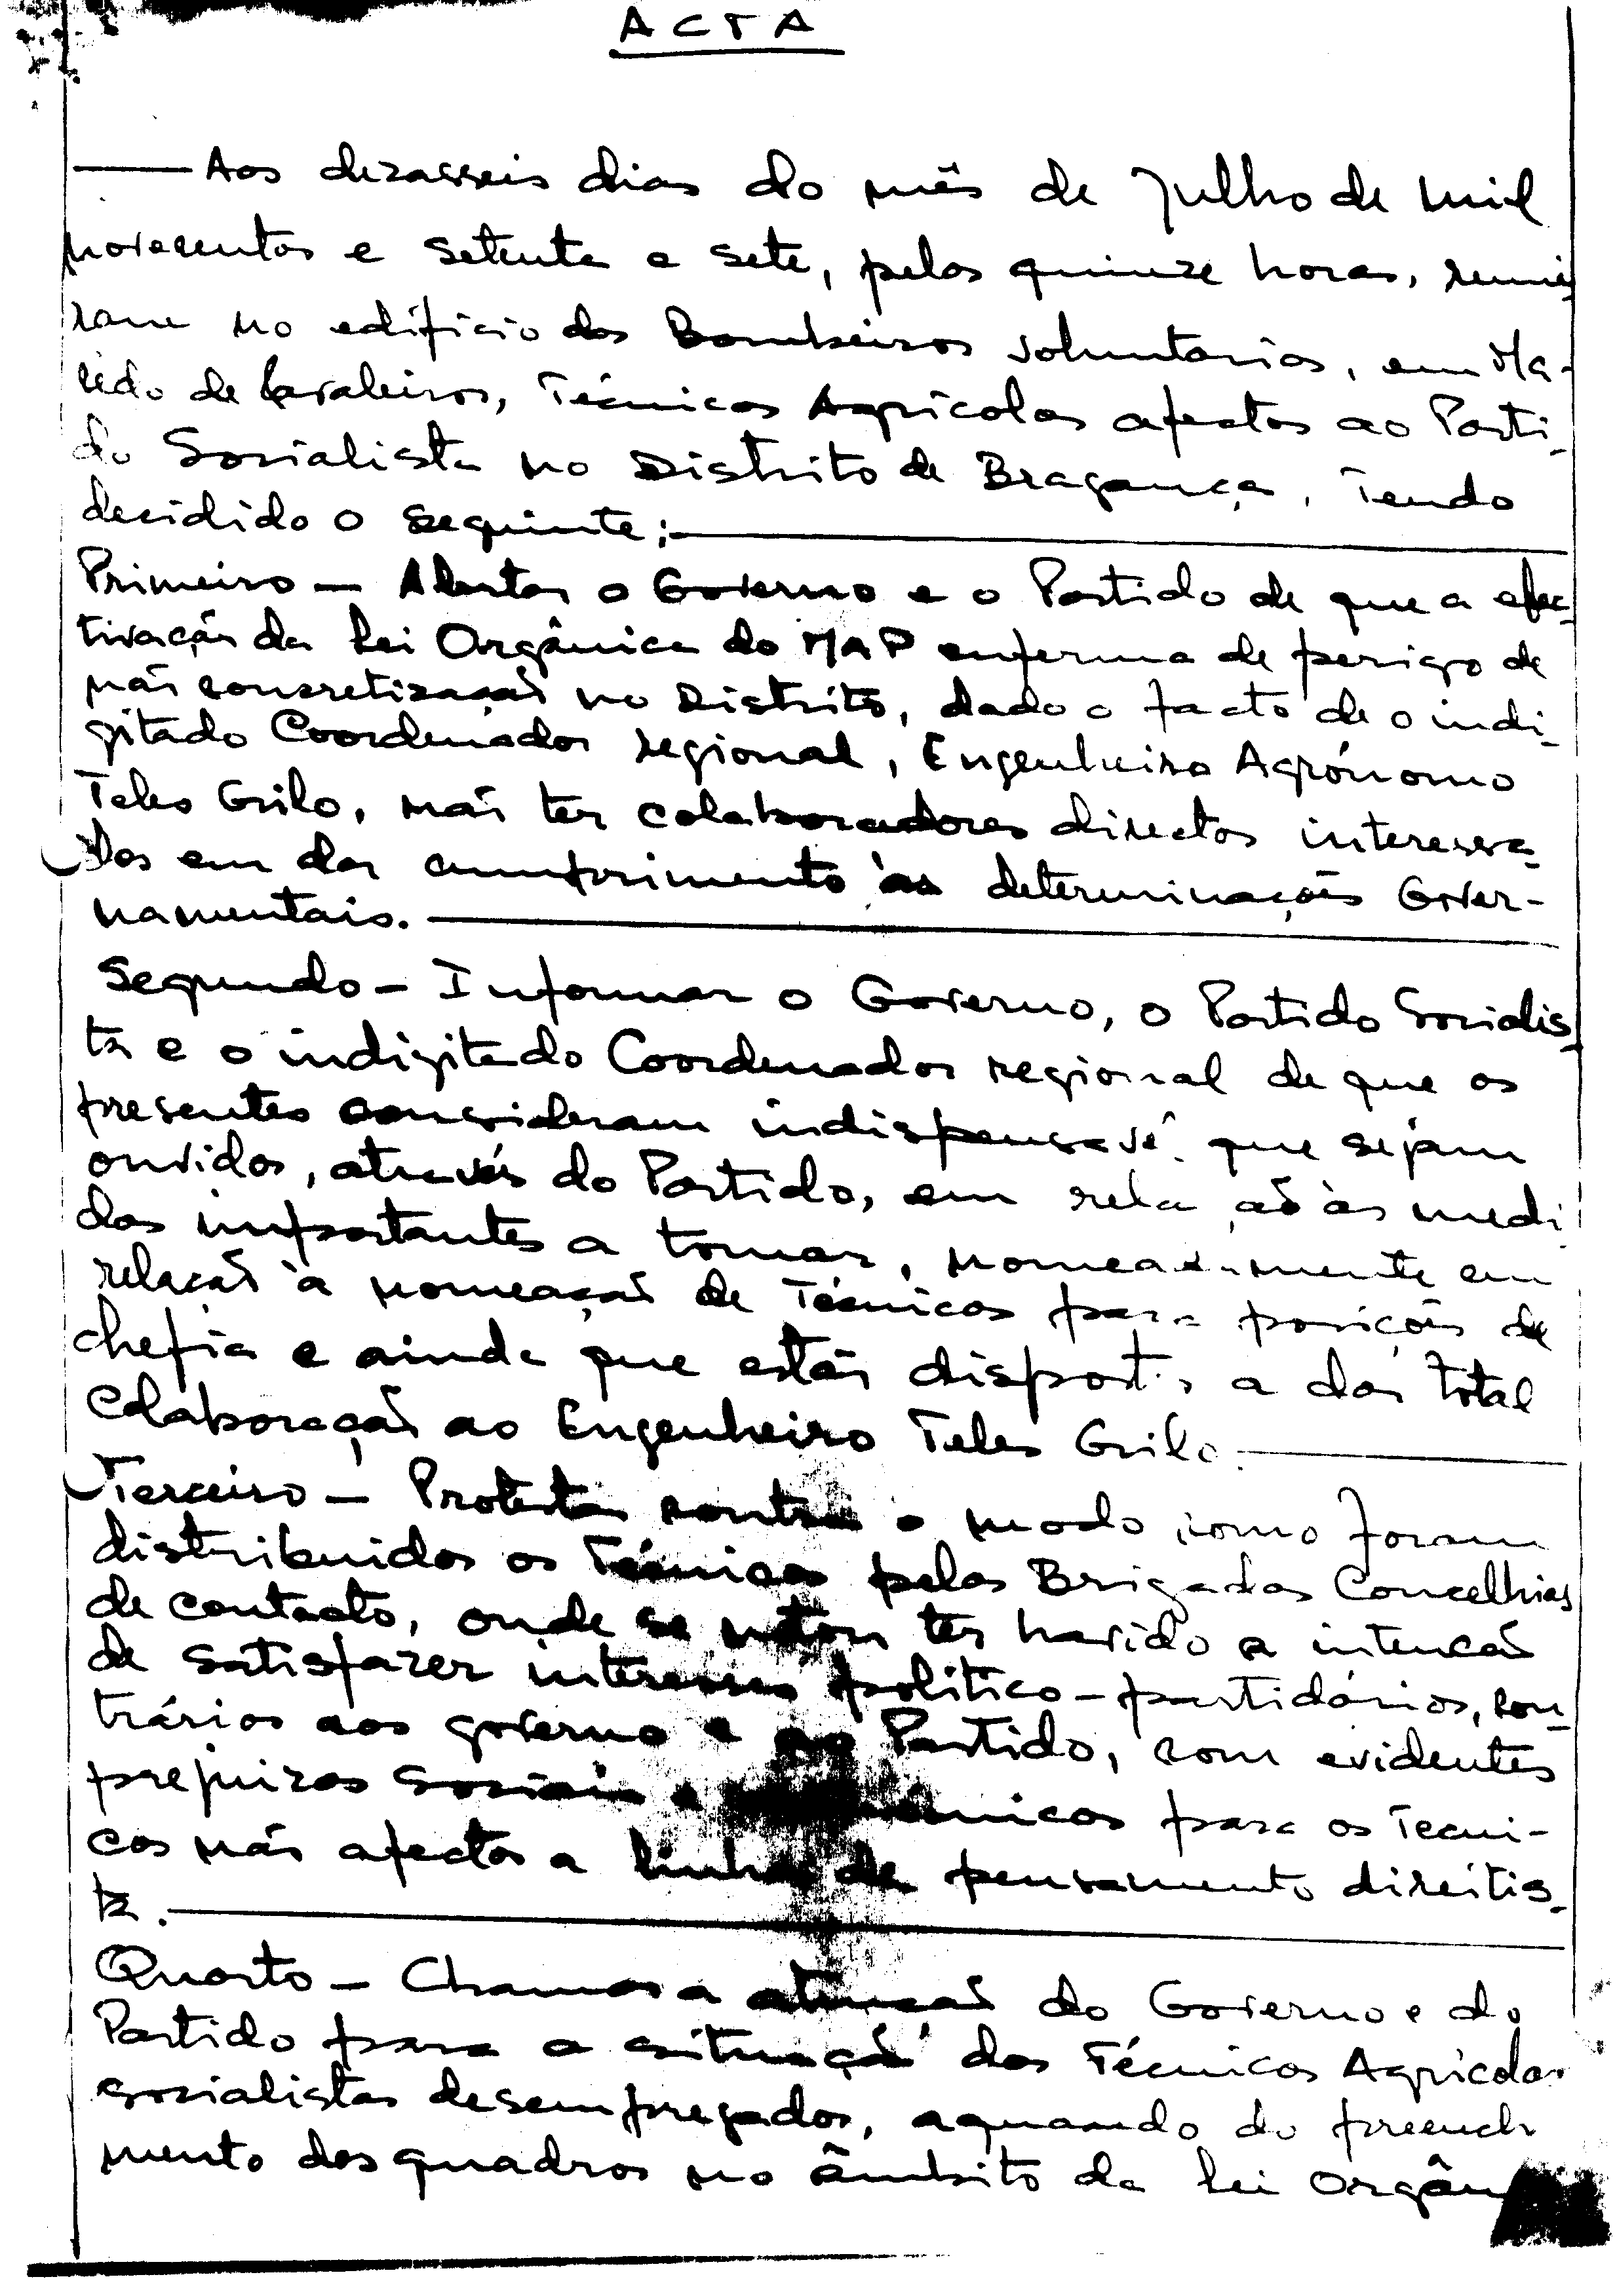 ACTA
Aos dezasseis dias do mês de Julho de mil
novecentos e setenta e sete, pelas quinze horas, reuni
ram no edifício dos Bombeiros Voluntarios, em Ma-
cedo de Cavaleiros, Técnicos Agrícolas afectos ao Parti-
do Socialista no Distrito de Bragança, Tendo
decidido o seguinte:
Primeiro - Alertar o Governo e o Partido de que a efec-
tivação da Lei Orgânica do MAP enferma de perigo de
não concretização no Distrito, dado o facto de o indi-
gitado Coordenador regional, Engenheiro Agrónomo
Teles Grilo, não ter colaboradores directos interessa-
dos em dar cumprimento às determinações Gover-
namentais.
Segundo - Informar o Governo, o Partido Socialis-
ta e o indigitado Coordenador regional de que os
presentes consideram indispensavé que sejam
ouvidos, através do Partido, em rela ão às medi
das importantes a tomar, nomeadamente em
relação à nomeação de Técnicos para posições de
chefia e ainda que estão dispostos a dar total
Colaboração ao Engenheiro Teles Grilo.
Terceiro - Protestar contra o modo como foram
distribuidos os Técnicos pelas Brigadas Concelhias
de contacto, onde se notou ter havido a intenção
de satisfazer interesses político-partidários, con-
trários aos governo e ao Partido, com evidentes
prejuizos sociais e económicos para os Tecni-
cos não afectos a linhas de pensamento direitis-
ta.
Quarto - Chamar a atenção do Governo e do
Partido para a situação dos Técnicos Agrícolas
socialistas desempregados, aquando do preenchi
mento dos quadros no âmbito da Lei Orgân